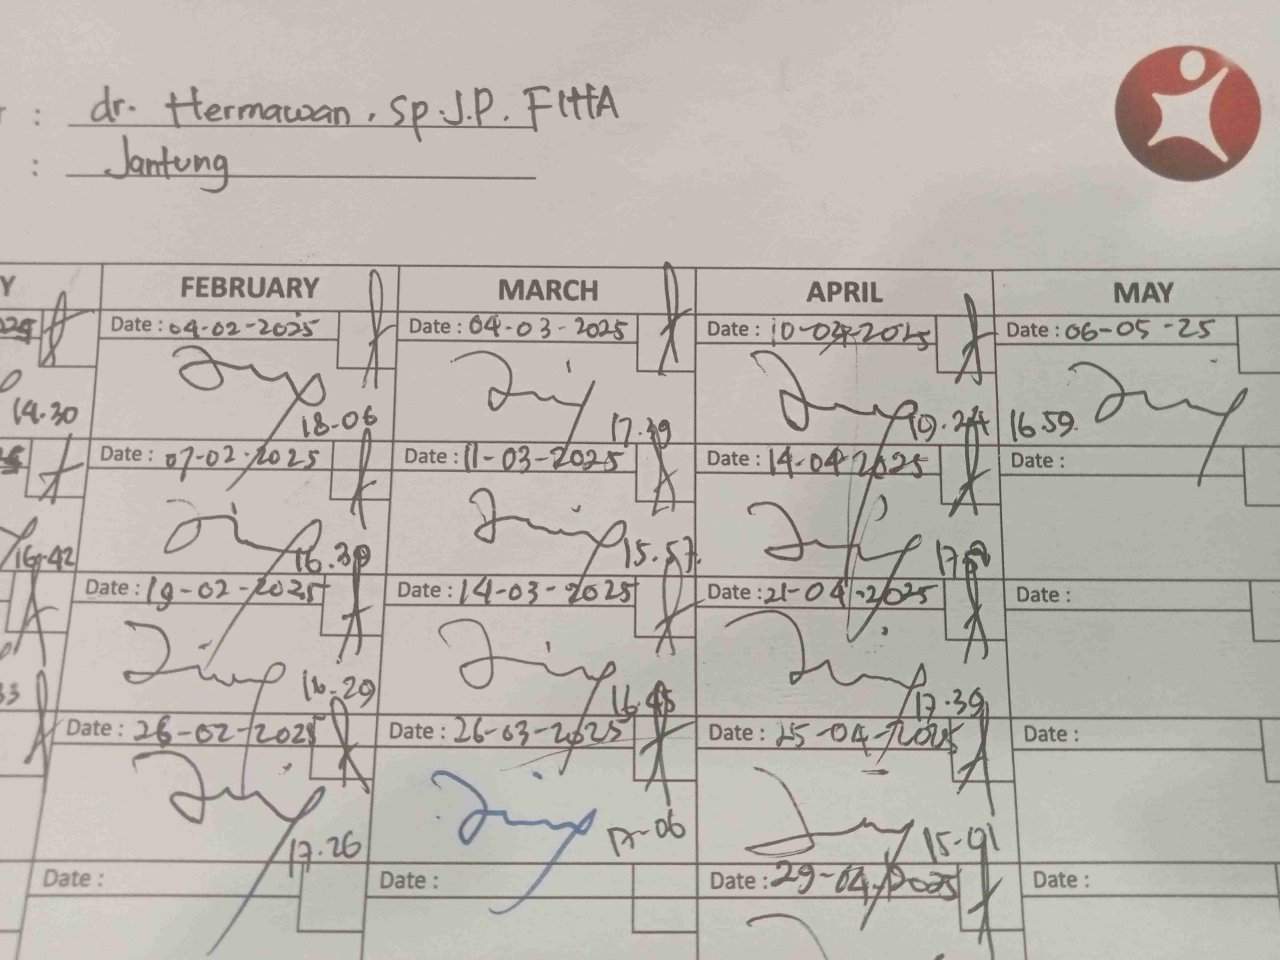 : dr. Hermawan, Sp.J.P. FIHA
: Jantung
Y FEBRUARY MARCH APRIL MAY
Date : 04-02-2025 Date : 04-03-2025 Date : 10-04-2025 Date : 06-05-25
14.30 18-06 17.39 16.59
Date : 07-02-2025 Date : 11-03-2025 Date : 14-04-2025 Date :
16-42 16.39 15.57
Date : 19-02-2025 Date : 14-03-2025 Date : 21-04-2025 Date :
33 16-29 16.45 17.39
Date : 26-02-2025 Date : 26-03-2025 Date : 25-04-2025 Date :
17.26 17-06 15-01
Date : Date : Date : 29-04-2025 Date :